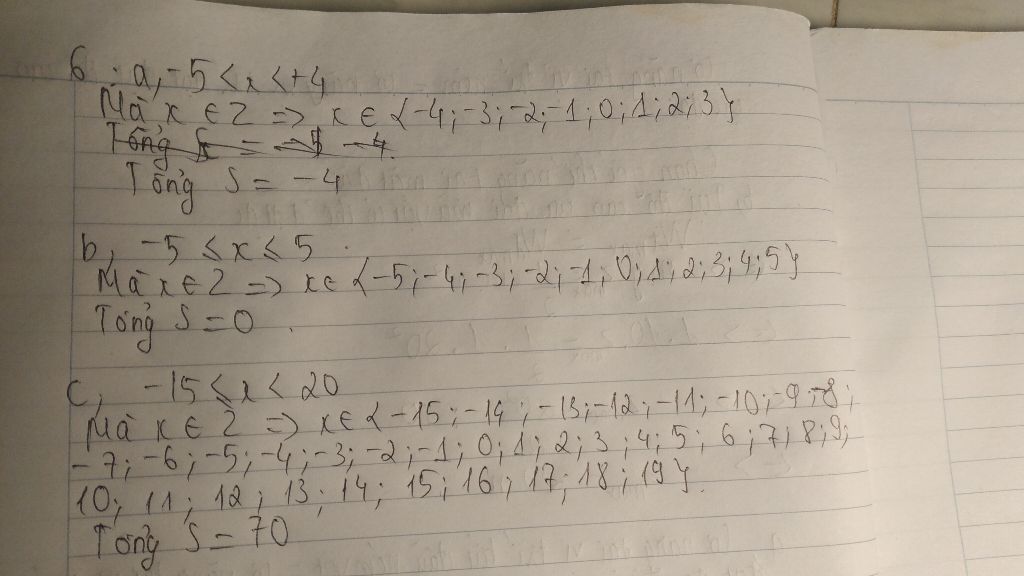 6. a, -5 < x < +4
Mà x ∈ Z => x ∈ {-4; -3; -2; -1; 0; 1; 2; 3}
Tổng S = -4
b, -5 ≤ x ≤ 5
Mà x ∈ Z => x ∈ {-5; -4; -3; -2; -1; 0; 1; 2; 3; 4; 5}
Tổng S = 0
c, -15 ≤ x < 20
Mà x ∈ Z => x ∈ {-15; -14; -13; -12; -11; -10; -9 -8;
-7; -6; -5; -4; -3; -2; -1; 0; 1; 2; 3; 4; 5; 6; 7; 8; 9;
10; 11; 12; 13; 14; 15; 16; 17; 18; 19}.
Tổng S = 70